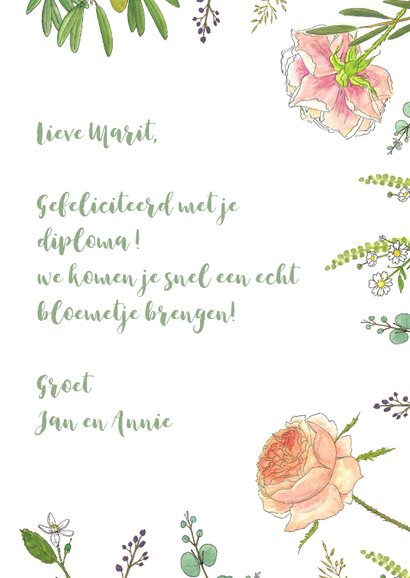 Lieve Marit,
Gefeliciteerd met je
diploma !
we komen je snel een echt
bloemetje brengen!
Groet
Jan en Annie